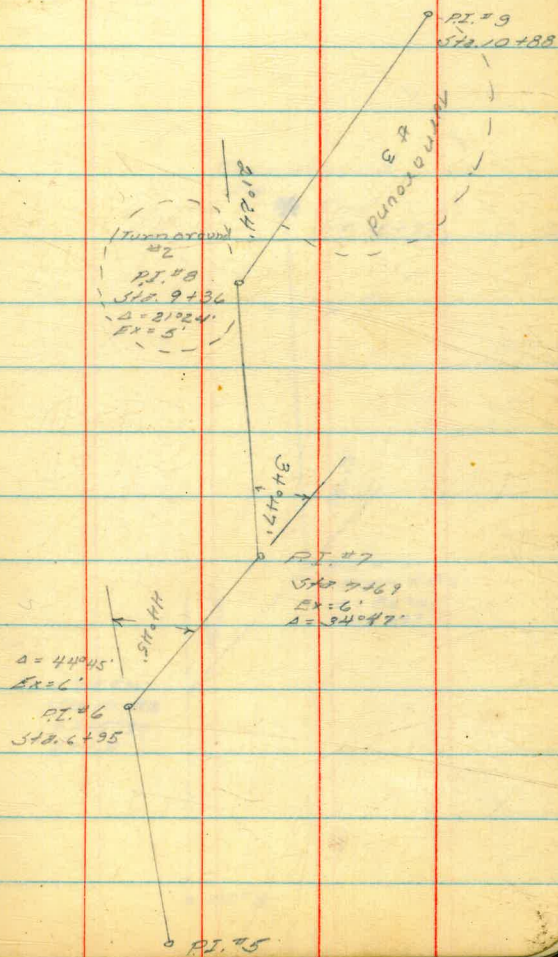 P.I. #9
Sta. 10+88
Turnaround
#3
21°24'
Turnaround
#2
P.I. #8
Sta. 9+36
Δ = 21°24'
Ex = 5'
34°47'
P.I. #7
Sta. 7+69
Ex = 6'
Δ = 34°47'
44°45'
Δ = 44°45'
Ex = 6'
P.I. #6
Sta. 6+95
P.I. #5